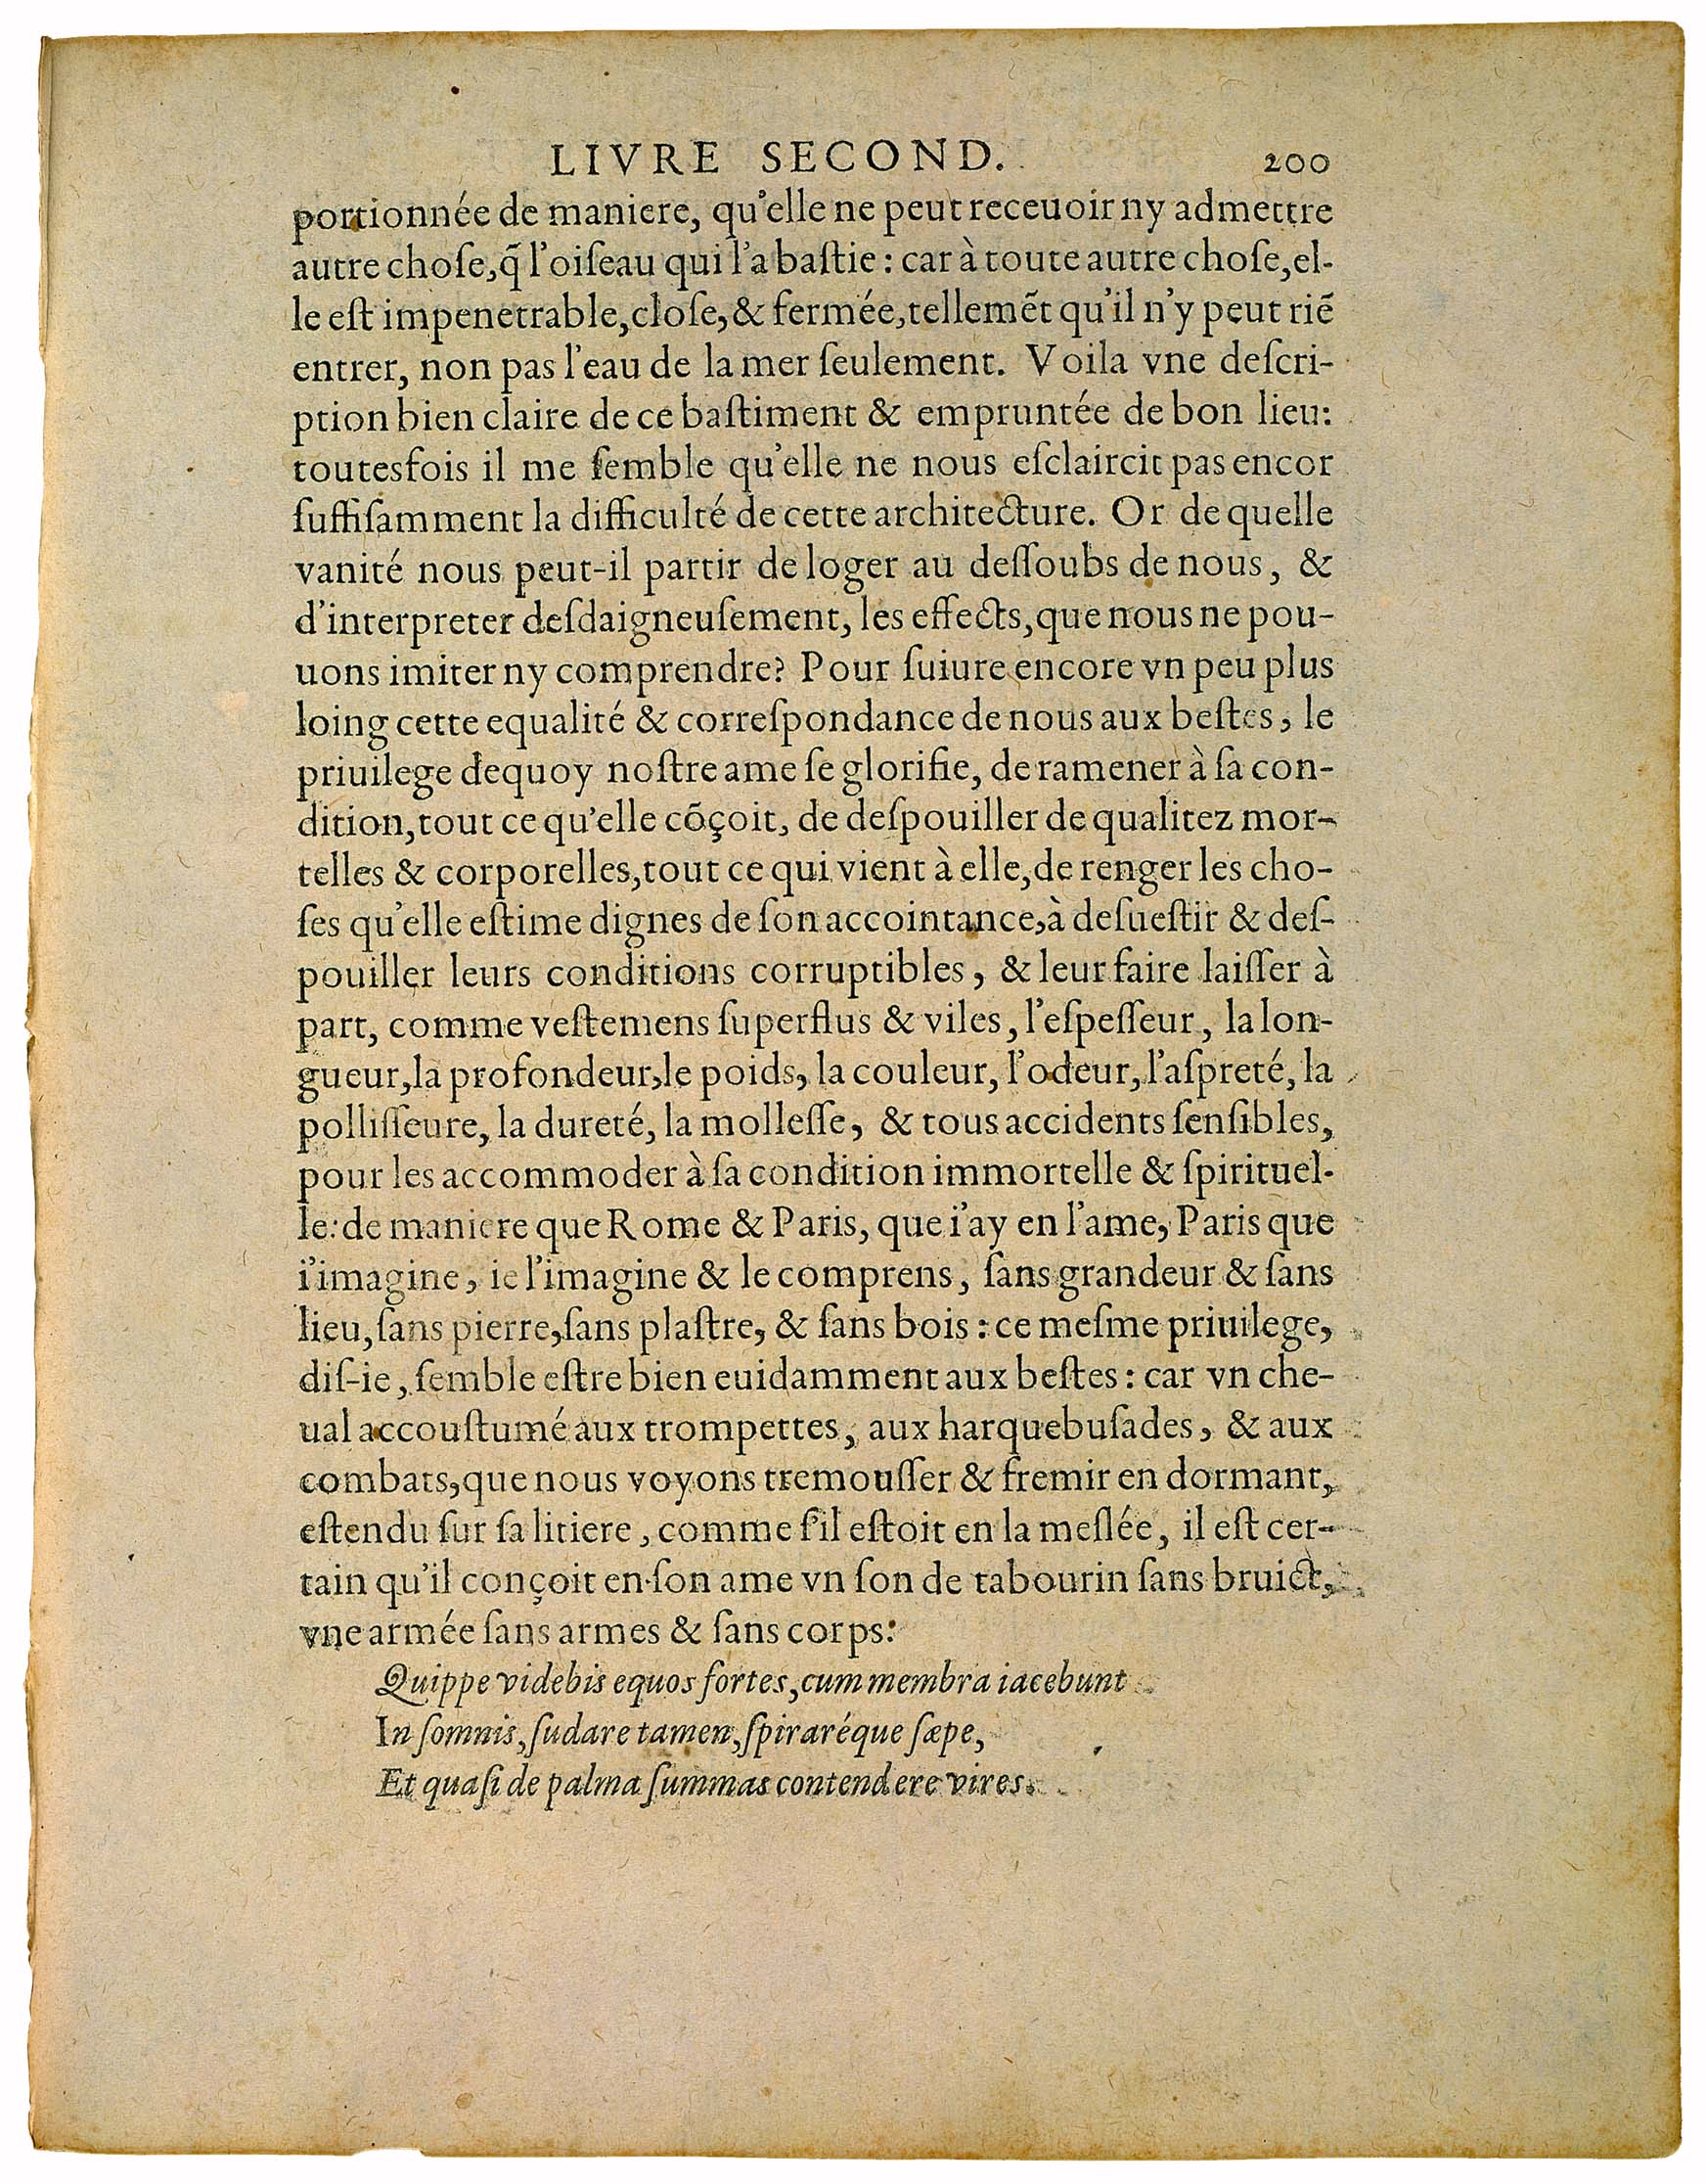 LIVRE SECOND. 200
portionnée de maniere, qu'elle ne peut receuoir ny admettre
autre choſe, q̃ l'oiſeau qui l'a baſtie : car à toute autre choſe, el-
le eſt impenetrable, cloſe, & fermée, tellemẽt qu'il n'y peut riẽ
entrer, non pas l'eau de la mer ſeulement. Voila vne deſcri-
ption bien claire de ce baſtiment & empruntée de bon lieu:
toutesfois il me ſemble qu'elle ne nous eſclaircit pas encor
ſuffiſamment la difficulté de cette architecture. Or de quelle
vanité nous peut-il partir de loger au deſſoubs de nous, &
d'interpreter deſdaigneuſement, les effects, que nous ne pou-
uons imiter ny comprendre? Pour ſuiure encore vn peu plus
loing cette equalité & correſpondance de nous aux beſtes, le
priuilege dequoy noſtre ame ſe glorifie, de ramener à ſa con-
dition, tout ce qu'elle cõçoit, de deſpouiller de qualitez mor-
telles & corporelles, tout ce qui vient à elle, de renger les cho-
ſes qu'elle eſtime dignes de ſon accointance, à deſueſtir & deſ-
pouiller leurs conditions corruptibles, & leur faire laiſſer à
part, comme veſtemens ſuperflus & viles, l'eſpeſſeur, la lon-
gueur, la profondeur, le poids, la couleur, l'odeur, l'aſpreté, la
polliſſeure, la dureté, la molleſſe, & tous accidents ſenſibles,
pour les accommoder à ſa condition immortelle & ſpirituel-
le: de maniere que Rome & Paris, que i'ay en l'ame, Paris que
i'imagine, ie l'imagine & le comprens, ſans grandeur & ſans
lieu, ſans pierre, ſans plaſtre, & ſans bois : ce meſme priuilege,
diſ-ie, ſemble eſtre bien euidamment aux beſtes : car vn che-
ual accouſtumé aux trompettes, aux harquebuſades, & aux
combats, que nous voyons tremouſſer & fremir en dormant,
eſtendu ſur ſa litiere, comme ſ'il eſtoit en la meſlée, il eſt cer-
tain qu'il conçoit en ſon ame vn ſon de tabourin ſans bruict,
vne armée ſans armes & ſans corps:
Quippe videbis equos fortes, cum membra iacebunt
In ſomnis, ſudare tamen, ſpiraréque ſæpe,
Et quaſi de palma ſummas contendere vires.